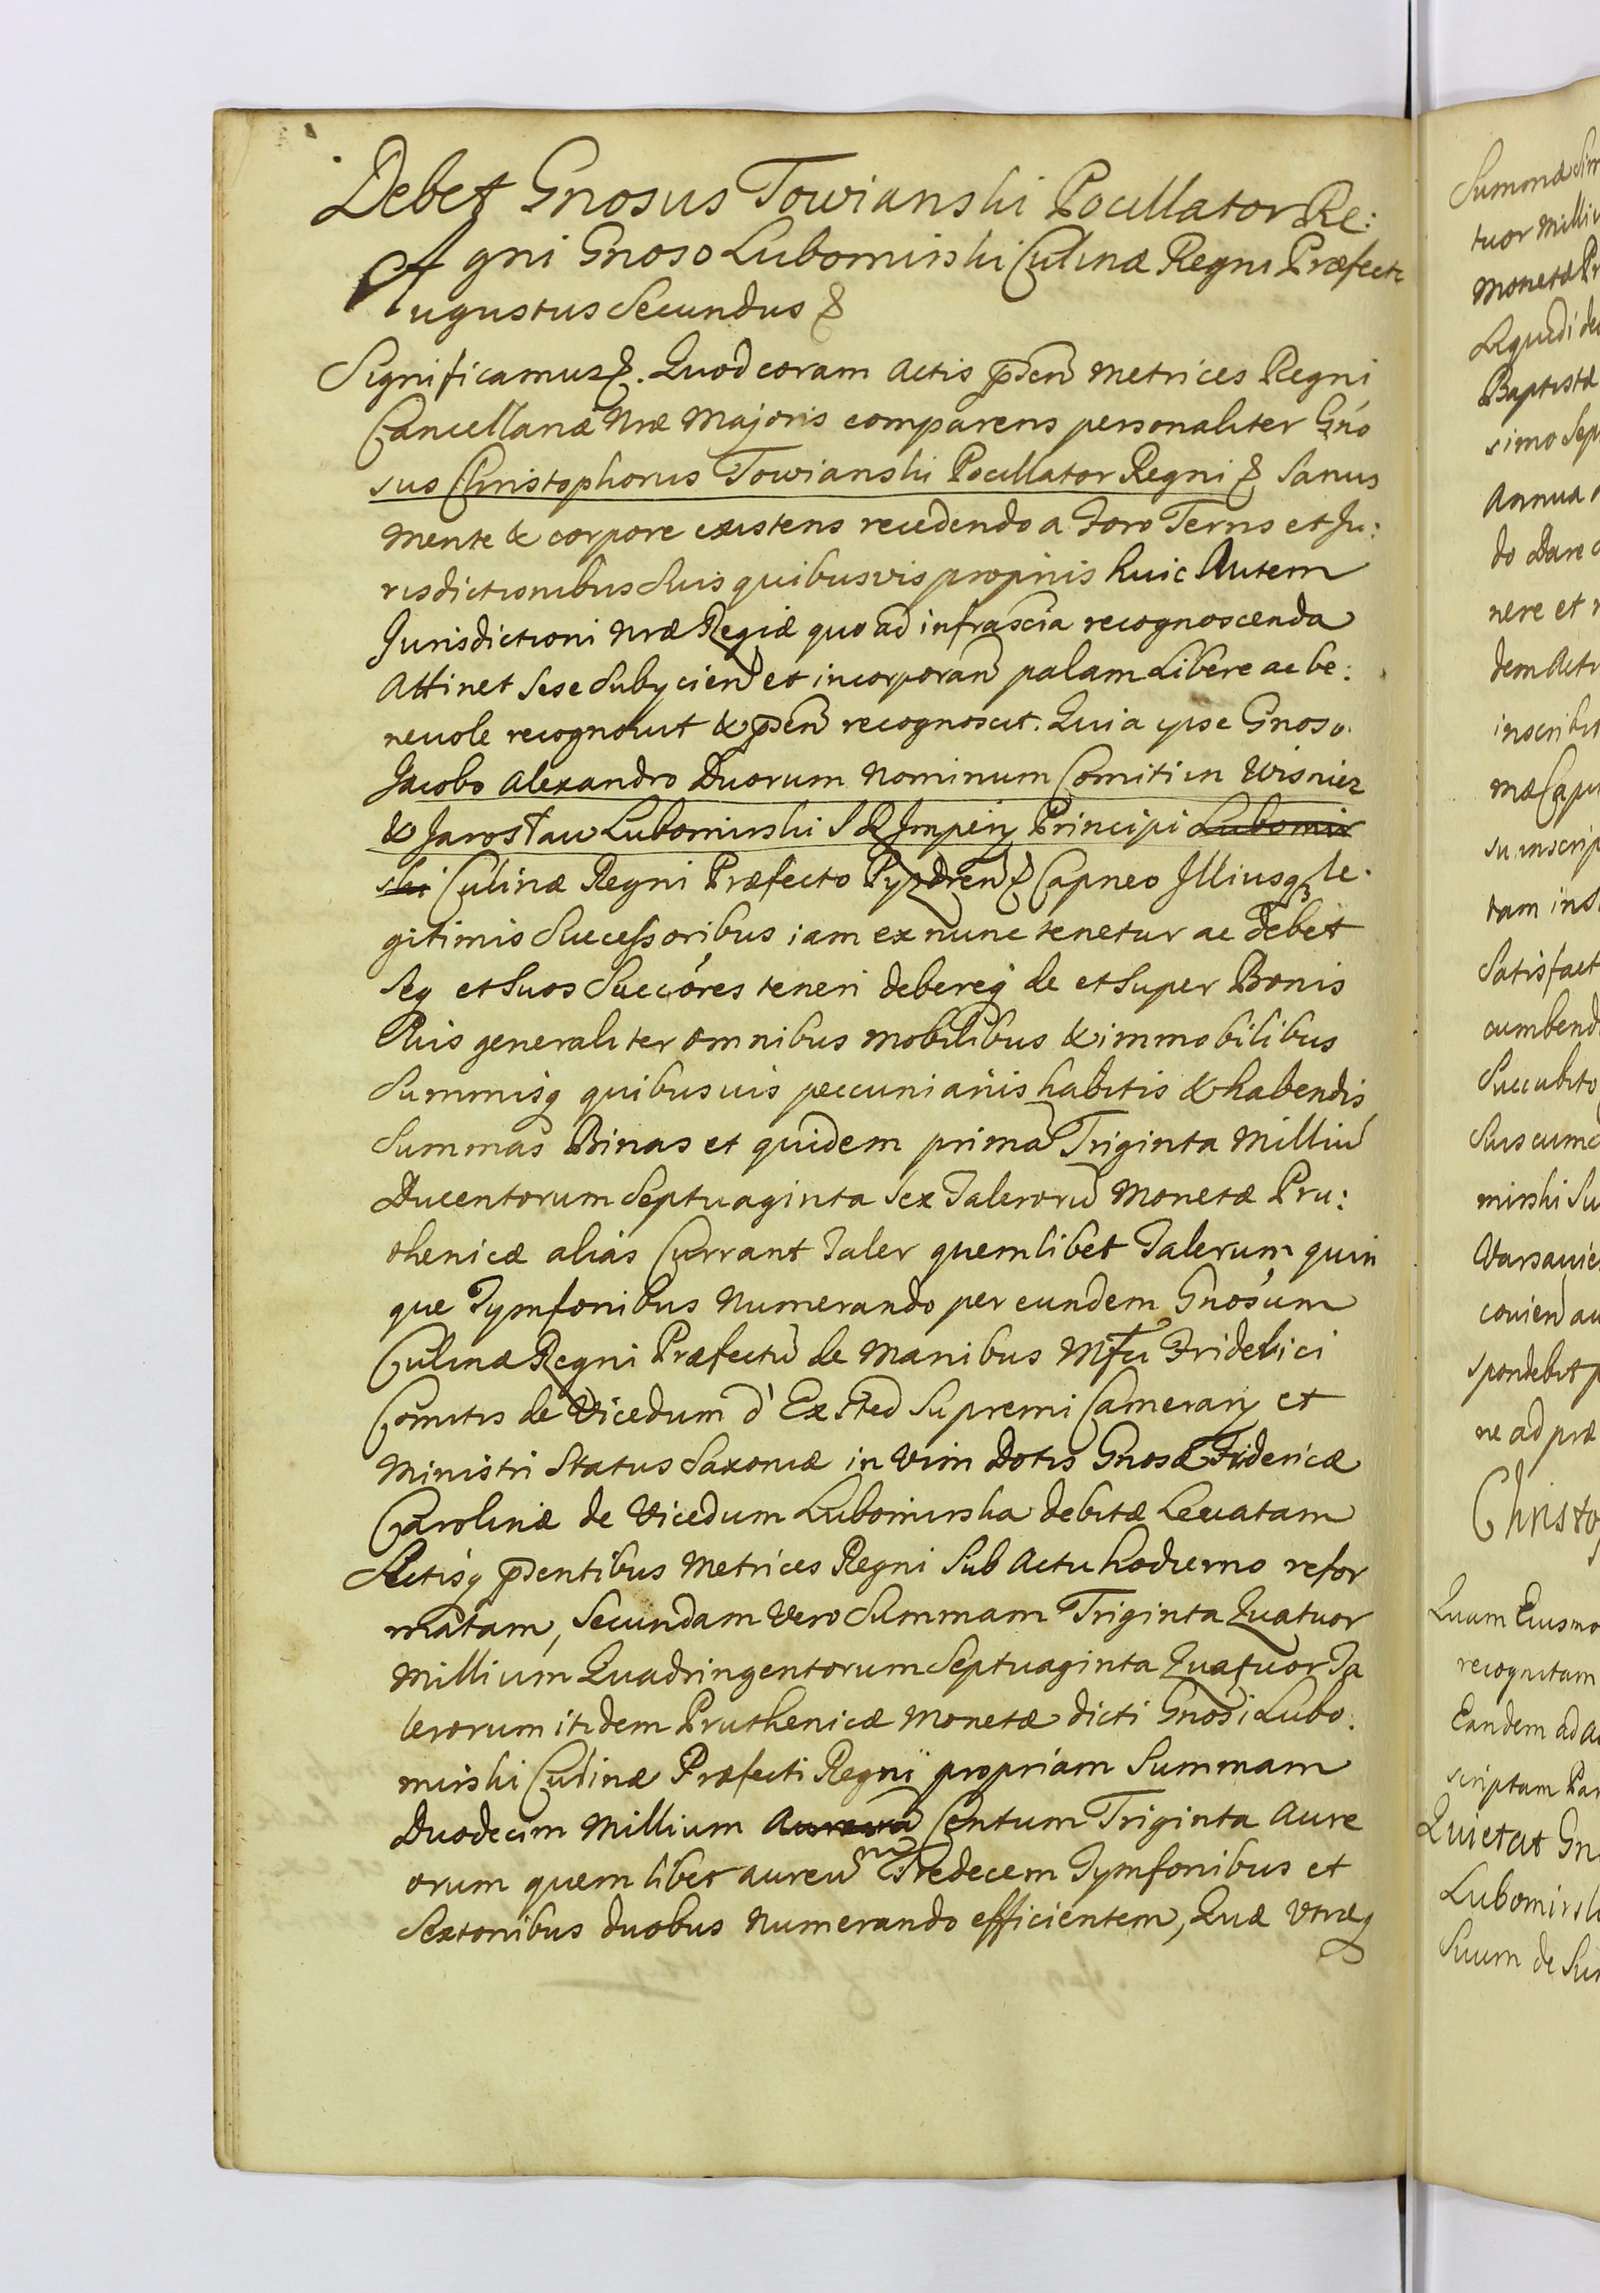 Debet Gnosus Towianski Pocillator Re:
gni Gnoso Lubomirski Culinæ Regni Præfecto
Augustus Secundus &
Significamus &. Quod coram Actis pñsen Metrices Regni
Cancellariæ Nræ Majoris comparens personaliter Gno
sus Christophorus Towianski Pocillator Regni & Sanus
Mente & corpore existens recedendo a Foro Terrs et Ju:
risdictionibus Suis quibusvis proprijs huic Autem
Jurisdictioni Nræ Regiæ quo ad infrascta recognoscenda
Attinet Sese Subycien et incorporan palam Libere ac be:
nevole recognovit & pñsen recognoscit. Quia ipse Gnoso
Jacobo Alexandro Duorum Nominum Comiti in Wisnicz
& Jarosław Lubomirski S R Imperij Principi Lubomir
ski Culinæ Regni Præfecto Pyzdren & Capneo Illiusq le
gitimis Successoribus iam ex nunc tenetur ac debet
Seq et Suos Succóres teneri debereq de et Super Bonis
Suis generaliter omnibus mobilibus & immobilibus
Summisq quibusvis peccuniarijs habitis & habendis
Summas Binas et quidem prima Triginta Milliu
Ducentorum Septuaginta Sex Taleroru Monetæ Pru:
thenicæ alias Currant Taler quemlibet Talerum quin
que Tymfonibus Numerando per eundem Gnosum
Culinæ Regni Præfectu de Manibus Mfci Friderici
Comitis de Vicedum d'Exsted Supremi Camerarij et
Ministri Status Saxoniæ in Vim Dotis Gnosæ Fridericæ
Carolinæ de Vicedum Lubomirska debitæ Levatam
Actisq pñsentibus Metrices Regni Sub Actu hodierno refor
matam, Secundam Vero Summam Triginta Quatuor
Millium Quadringentorum Septuaginta Quatuor Ta
lerorum itidem Pruthenicæ Monetæ dicti Gnosi Lubo:
mirski Culinæ Præfecti Regni propriam Summam
Duodecim Millium Aureoru Centum Triginta Aure
orum quemlibet aureu Tredecem Tymfonibus et
Sextonibus duobus Numerando efficientem, Quæ Utræq
Summæ
tuor
Monetæ
Liquidi
Baptistæ
simo
Annua
do Dare
nere et
dem
tam
Satisfact
cumbend
mirski
ne ad præ
recognitam
Eandem ad
scriptam
Quietat Gn
Lubomirski
Suum de